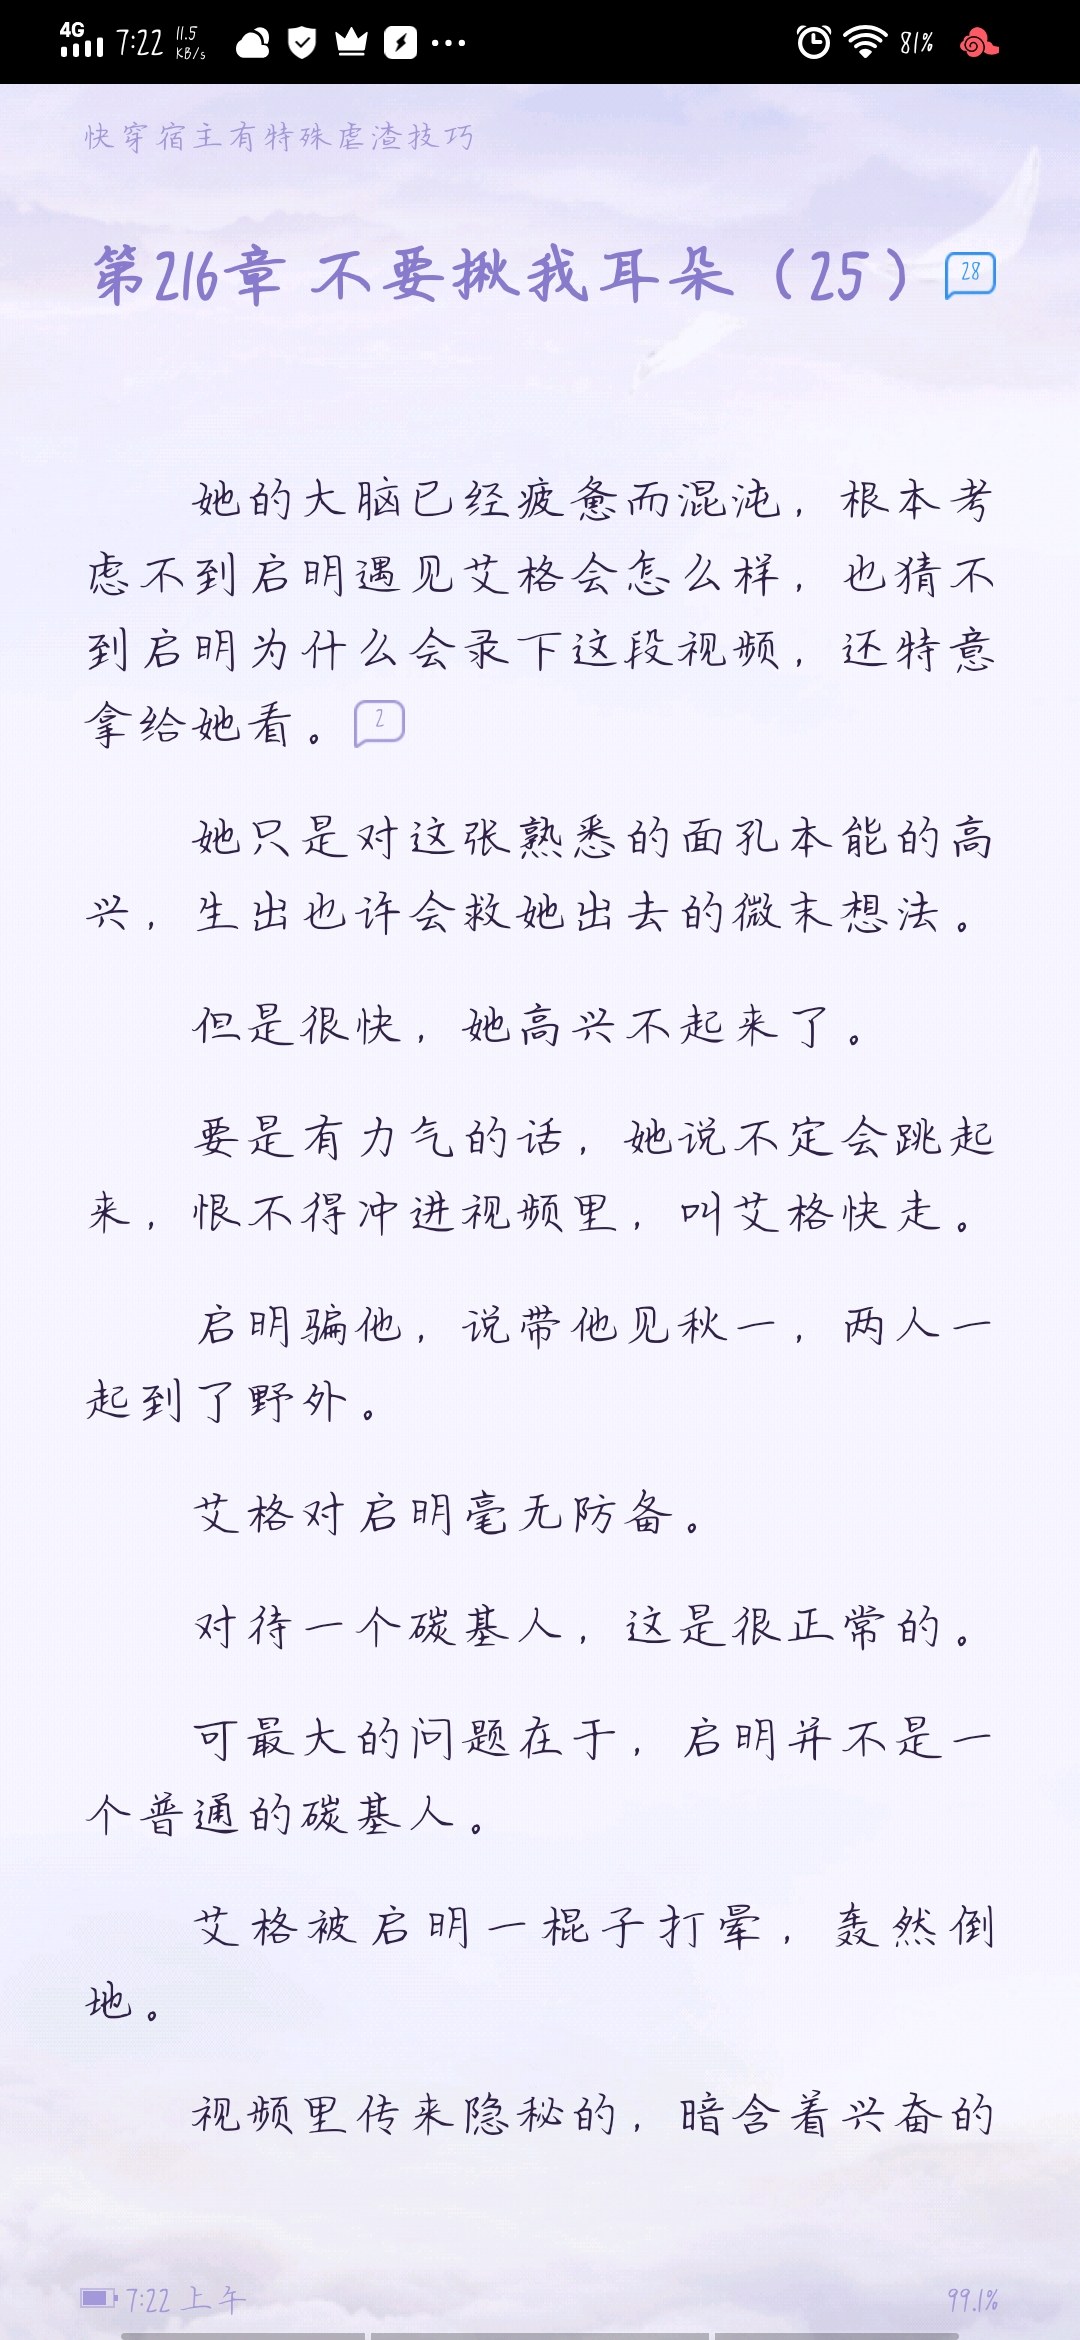 4G 7:22 11.5 KB/s 81%
快穿宿主有特殊虐渣技巧
第216章 不要揪我耳朵（25） 28
她的大脑已经疲惫而混沌，根本考
虑不到启明遇见艾格会怎么样，也猜不
到启明为什么会录下这段视频，还特意
拿给她看。 2
她只是对这张熟悉的面孔本能的高
兴，生出也许会救她出去的微末想法。
但是很快，她高兴不起来了。
要是有力气的话，她说不定会跳起
来，恨不得冲进视频里，叫艾格快走。
启明骗他，说带他见秋一，两人一
起到了野外。
艾格对启明毫无防备。
对待一个碳基人，这是很正常的。
可最大的问题在于，启明并不是一
个普通的碳基人。
艾格被启明一棍子打晕，轰然倒
地。
视频里传来隐秘的，暗含着兴奋的
7:22 上午 99.1%